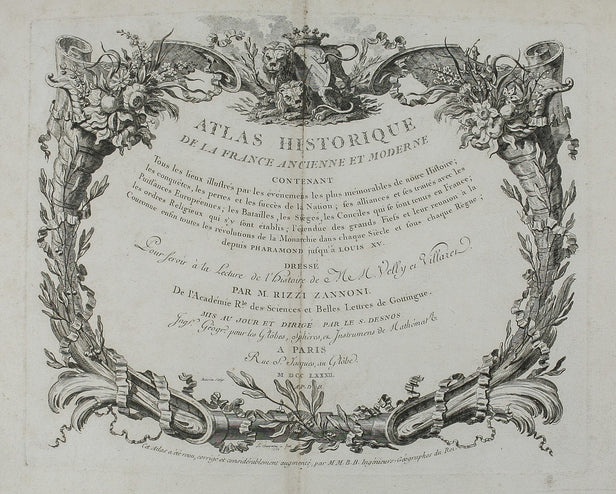 ATLAS HISTORIQUE
DE LA FRANCE ANCIENNE ET MODERNE
CONTENANT
Tous les lieux illustrés par les événemens les plus mémorables de notre Histoire;
les conquêtes, les pertes et les succès de la Nation; ses alliances et ses traités avec les
Puissances Européennes; les Batailles, les Sièges, les Conciles qui se sont tenus en France;
les ordres Religieux qui s'y sont établis; l'étendue des grands Fiefs et leur réunion à la
Couronne enfin toutes les révolutions de la Monarchie dans chaque Siècle et sous chaque Règne;
depuis PHARAMOND jusqu'à LOUIS XV.
Pour servir à la Lecture de l'Histoire de M M Velly et Villaret
DRESSÉ
PAR M. RIZZI ZANNONI.
De l'Académie Rle des Sciences et Belles Lettres de Gottingue.
MIS AU JOUR ET DIRIGÉ PAR LE S. DESNOS
Ingr. Géogr. pour les Globes, Sphères, et Instrumens de Mathémat.
A PARIS
Rue St. Jacques, au Globe.
M DCC LXXXII.
A.P.D.R.
Cet Atlas a été revu, corrigé et considérablement augmenté, par M M. B. B. Ingénieurs-Géographes du Roi.